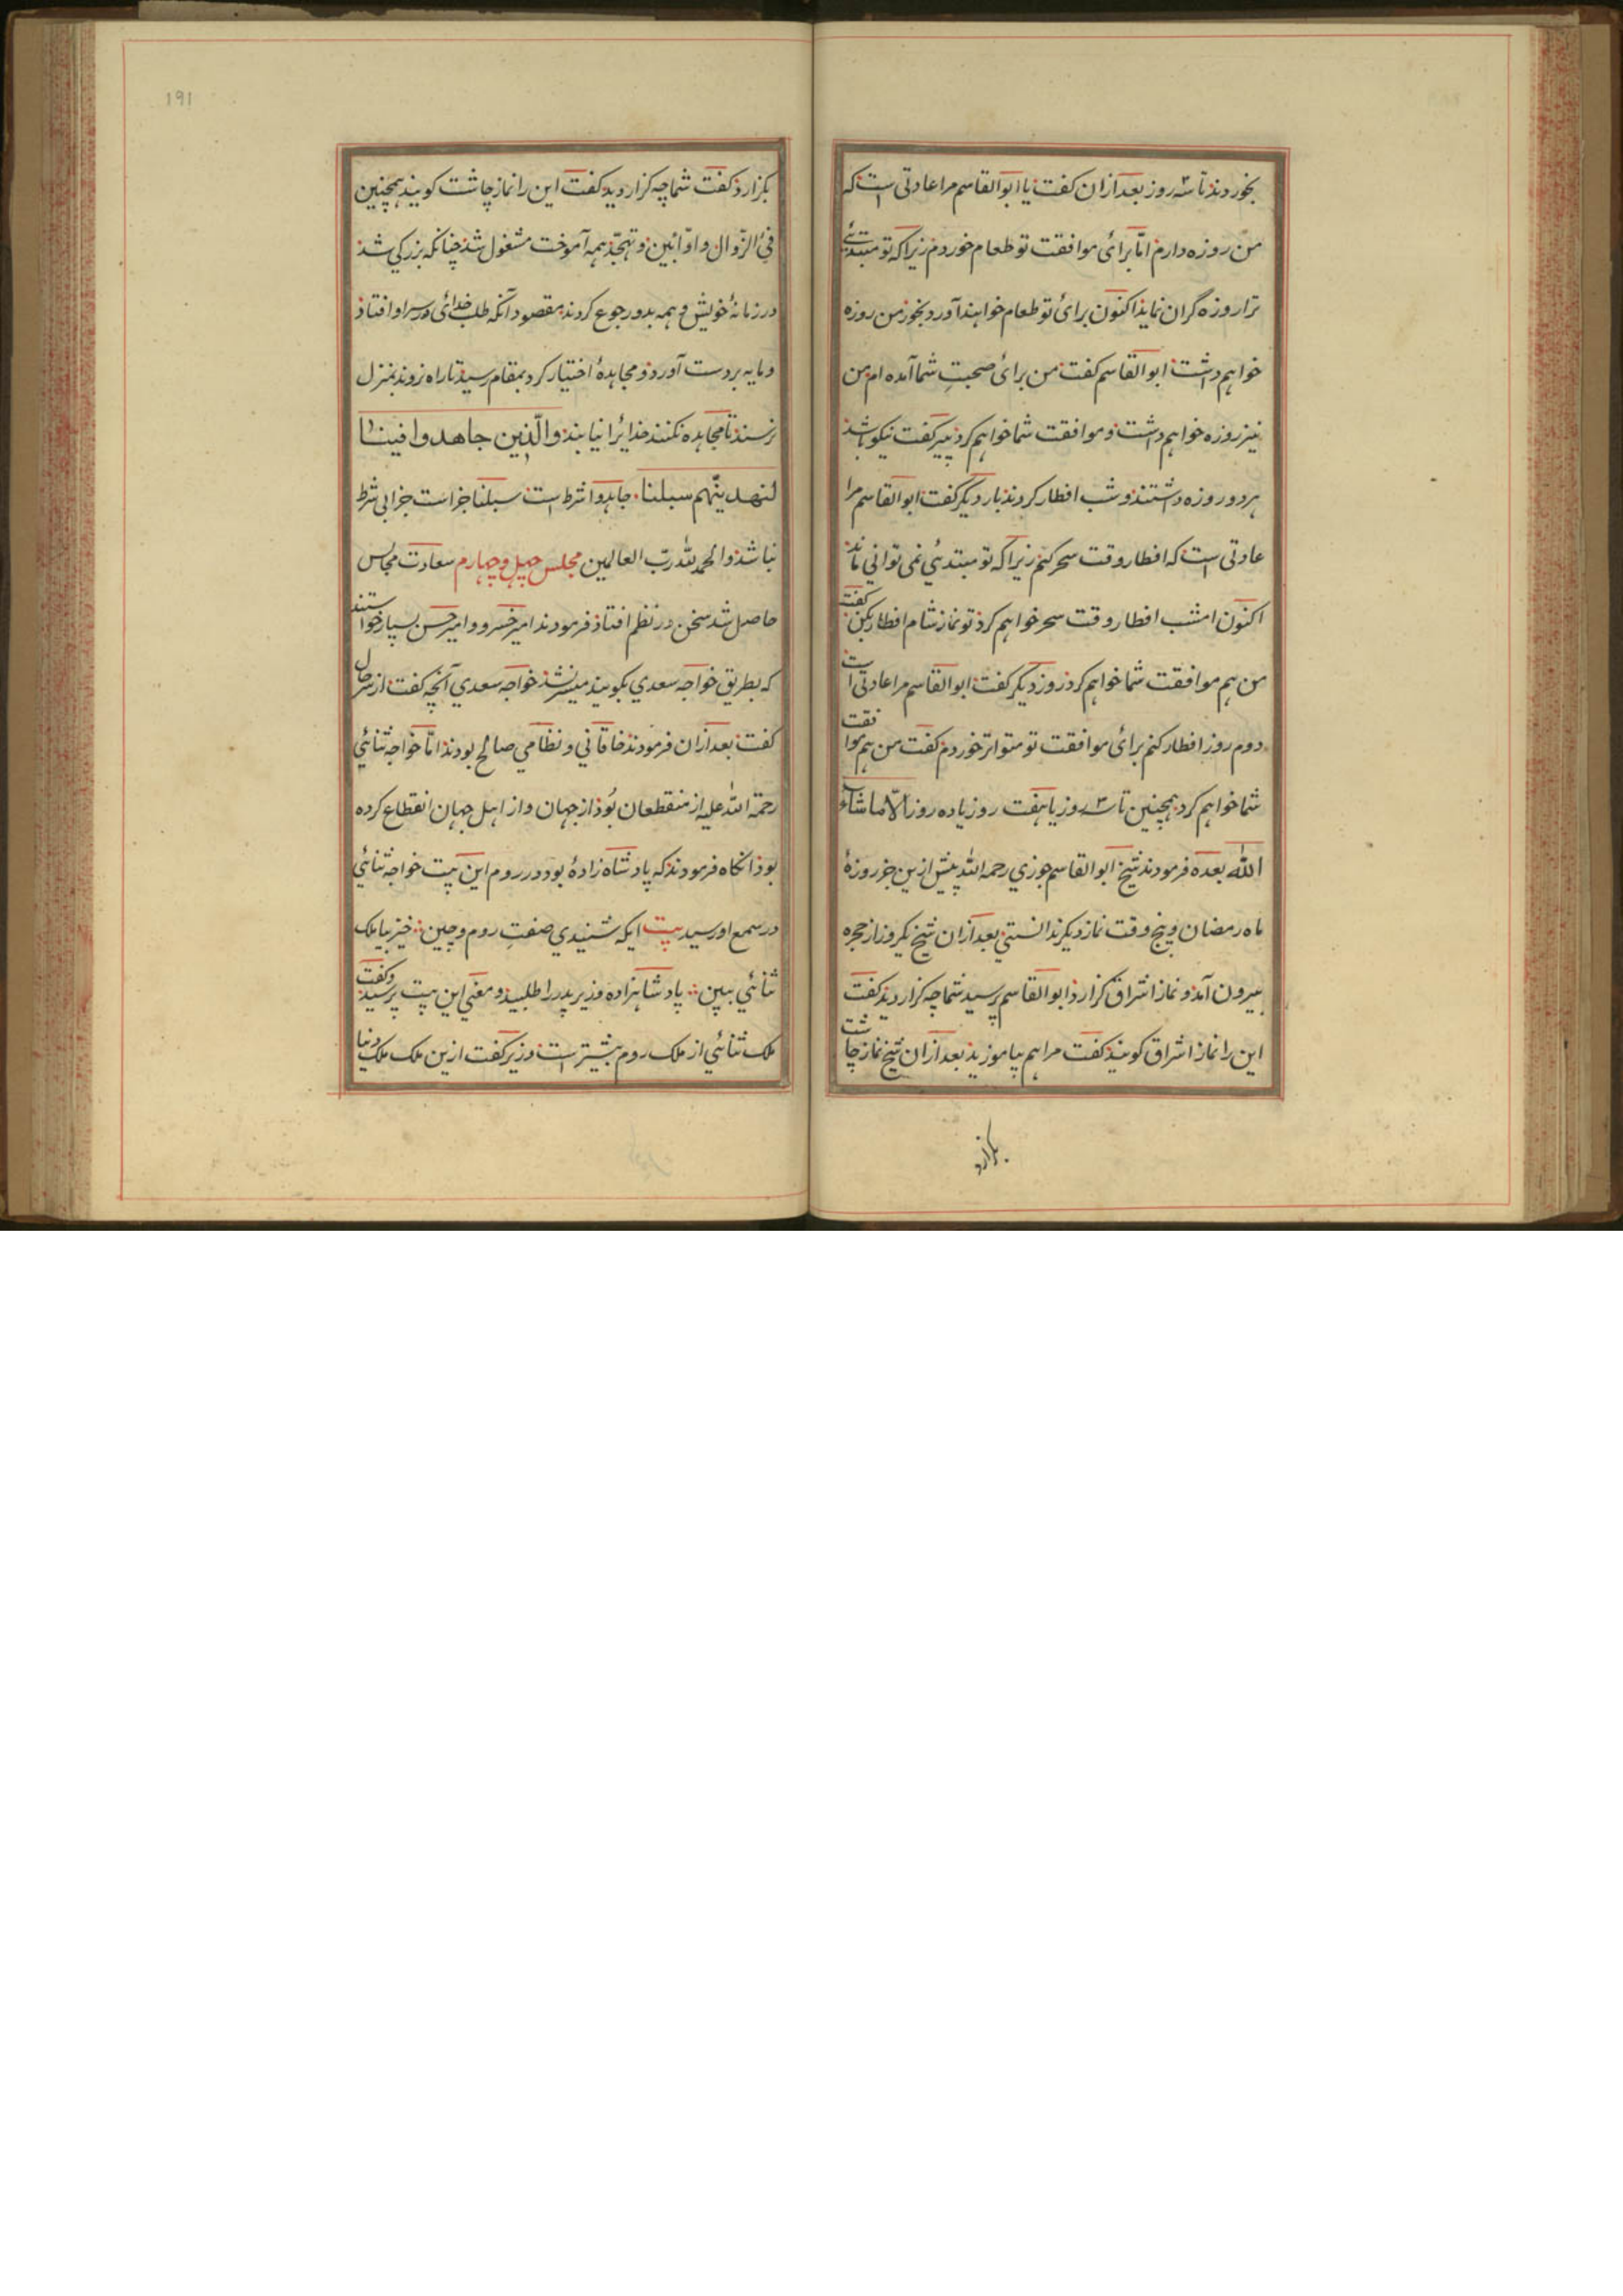 بخوردند تا سه روز بعد ازان گفت یا ابوالقاسم مرا عادتی است که
من روزه دارم امّا برائی موافقت تو طعام خوردم زیراکه تو مبتدئی
ترا روزه گران نماید اکنون برائی تو طعام خواهند آورد بخور من روزه
خواهم داشت ابوالقاسم گفت من برائی صحبتِ شما آمده ام من
نیز روزه خواهم داشت و موافقت شما خواهم کرد پیر گفت نیکو باشد
هر دو روزه داشتند و شب افطار کردند بار دیگر گفت ابوالقاسم مرا
عادتی است که افطار وقت سحر کنم زیراکه تو مبتدئی نمی توانی ماند
اکنون امشب افطار وقت سحر خواهم کرد تو نماز شام افطار بکن گفت
من هم موافقت شما خواهم کرد روز دیگر گفت ابوالقاسم مرا عادتی است
دوم روز افطار کنم برائی موافقت تو متواتر خوردم گفت من هم موافقت
شما خواهم کرد همچنین تا سه روز یا هفت روز یا ده روز الّا ما شاء
اللّه بعده فرمودند شیخ ابوالقاسم جوزي رحمه اللّه پیش ازین جز روزهٔ
ماه رمضان و پنج وقت نماز دیگر ندانستي بعد ازان شیخ یکروز از حجره
بیرون آمد و نماز اشراق گزارد ابوالقاسم پرسید شما چه گزاردید گفت
این را نماز اشراق گویند گفت مرا هم بیاموزید بعد ازان شیخ نماز چاشت
بگزارد
191
بگزارد گفت شما چه گزاردید گفت این را نماز چاشت گویند همچنین
فئ الزّوال و اوّابین و تهجّد همه آموخت مشغول شد چنانکه بزرگي شد
در زمانهٔ خویش و همه بدو رجوع کردند مقصود آنکه طلب خدائی در سر او افتاد
و مایه بر دست آورد و مجاهدهٔ اختیار کرد بمقام رسید تا راه نروند بمنزل
نرسند تا مجاهده نکنند خدائرا نیابند والّذین جاهدوا فینا
لنهدینّهم سبلنا جاهدوا شرط است سبلنا جزاست جزا بی شرط
نباشد والحمد للّه ربّ العالمین مجلس چهل و چهارم سعادت مجلس
حاصل شد سخن در نظم افتاد فرمودند امیر خسرو و امیر حسن بسیار خواستند
که بطریق خواجه سعدي بگویند میسر نشد خواجه سعدي آنچه گفت از سر حال
گفت بعد ازان فرمودند خاقاني و نظامي صالح بودند امّا خواجه ثنائي
رحمة اللّه علیه از منقطعان بُود از جهان و از اهل جهان انقطاع کرده
بود انگاه فرمودند که پادشاه زادهٔ بود در روم این بیت خواجه ثنائي
در سمع او رسید بیت ایکه شنیدي صفتِ روم و چین خیز بیا ملک
ثنائي ببین پادشاهزاده وزیر پدر را طلبید و معني این بیت پرسید و گفت
ملک ثنائي از ملک روم بیشتر است وزیر گفت ازین ملک ملک دنیا